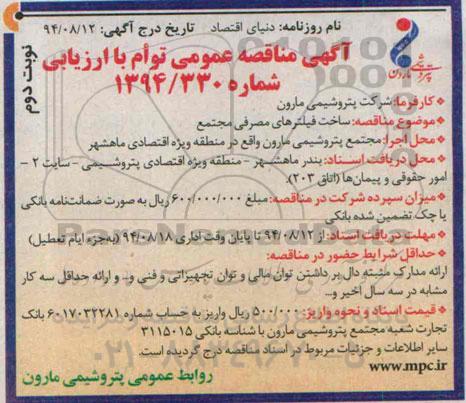 نام روزنامه: دنیای اقتصاد    تاریخ درج آگهی: ۹۴/۰۸/۱۲
نوبت دوم
پتروشیمی مارون
آگهی مناقصه عمومی توأم با ارزیابی
شماره ۱۳۹۴/۳۳۰
❖ کارفرما: شرکت پتروشیمی مارون
❖ موضوع مناقصه: ساخت فیلترهای مصرفی مجتمع
❖ محل اجرا: مجتمع پتروشیمی مارون واقع در منطقه ویژه اقتصادی ماهشهر
❖ محل دریافت اسناد: بندر ماهشهر - منطقه ویژه اقتصادی پتروشیمی - سایت ۲ -
امور حقوقی و پیمان‌ها (اتاق ۲۰۳).
❖ میزان سپرده شرکت در مناقصه: مبلغ ۶۰۰/۰۰۰/۰۰۰ ریال به صورت ضمانت‌نامه بانکی
یا چک تضمین شده بانکی
❖ مهلت دریافت اسناد: از ۹۴/۰۸/۱۲ تا پایان وقت اداری ۹۴/۰۸/۱۸ (به‌جزء ایام تعطیل)
❖ حداقل شرایط حضور در مناقصه:
ارائه مدارک مثبته دال بر داشتن توان مالی و توان تجهیزاتی و فنی و.. و ارائه حداقل سه کار
مشابه در سه سال اخیر و...
❖ قیمت اسناد و نحوه واریز: ۵۰۰/۰۰۰ ریال واریز به حساب شماره ۶۰۱۷۰۳۲۲۸۱ بانک
تجارت شعبه مجتمع پتروشیمی مارون با شناسه بانکی ۳۱۱۵۰۱۵
سایر اطلاعات و جزئیات مربوط در اسناد مناقصه درج گردیده است.
www.mpc.ir
روابط عمومی پتروشیمی مارون